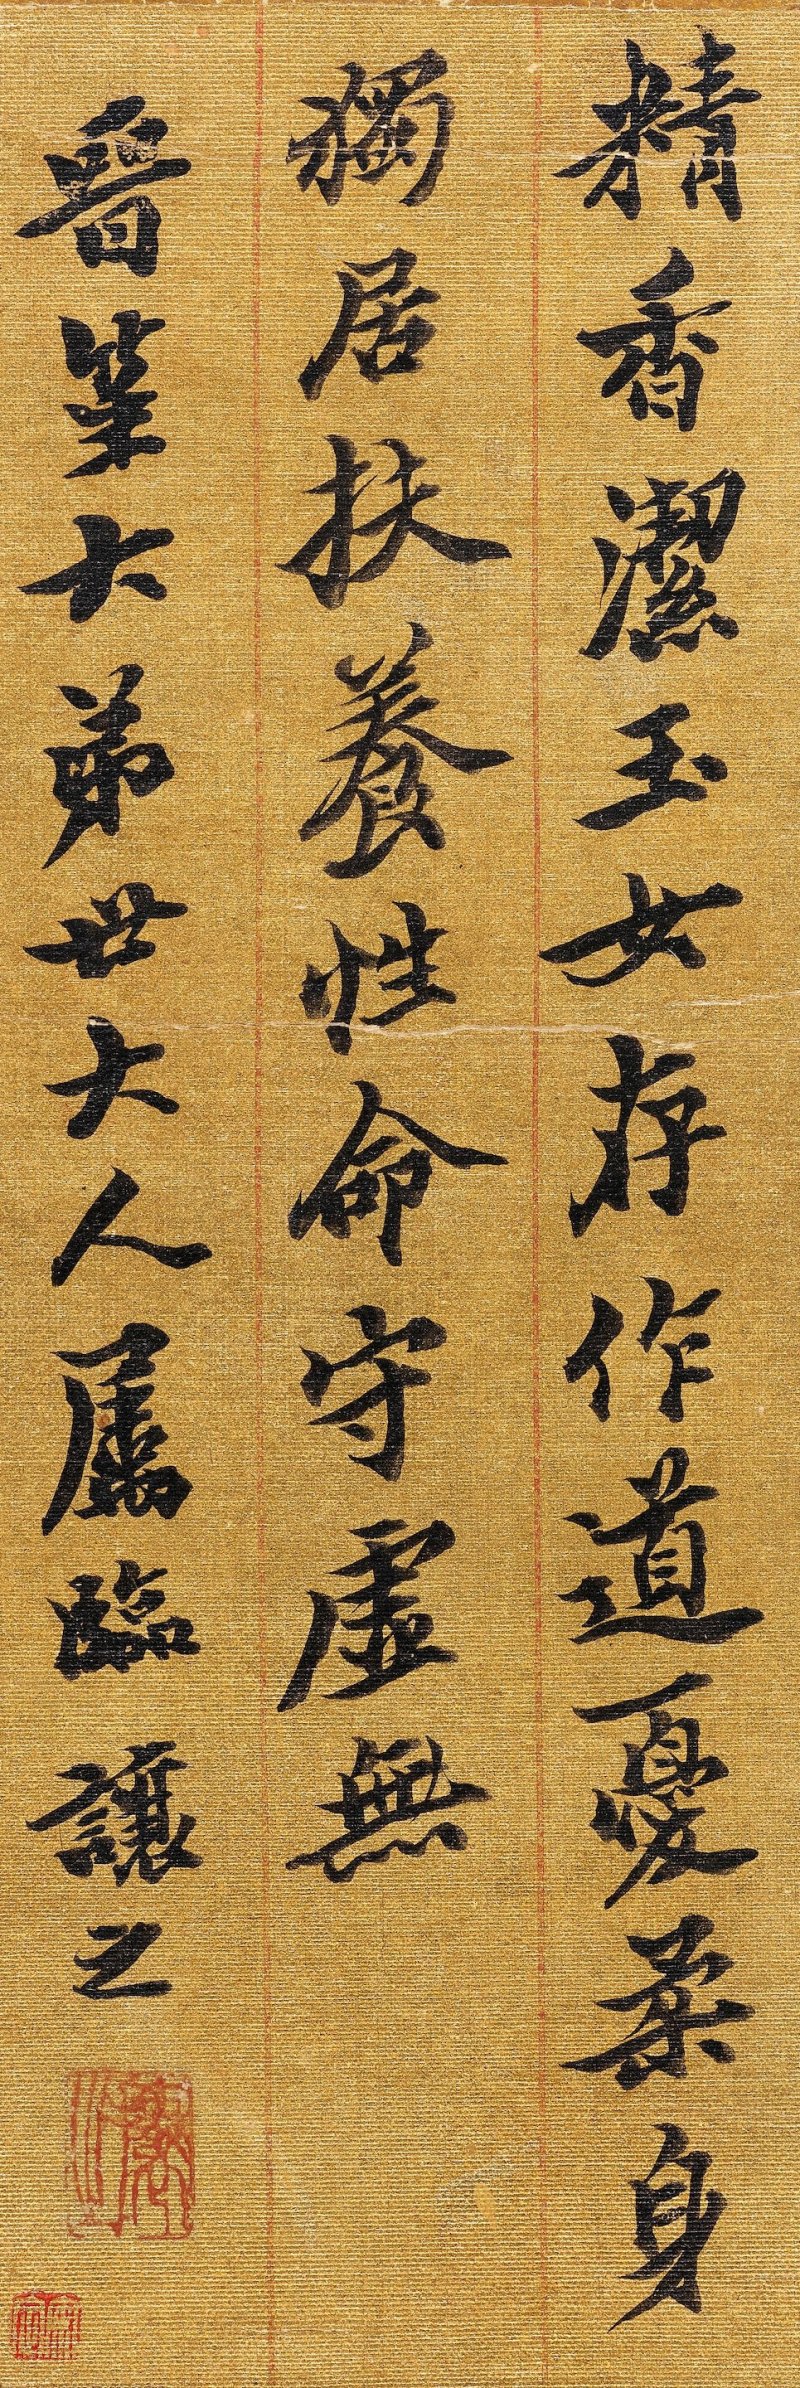 精香潔玉女存作道憂柔身
獨居扶養性命守虛無
晉筀大弟世大人屬臨 讓之